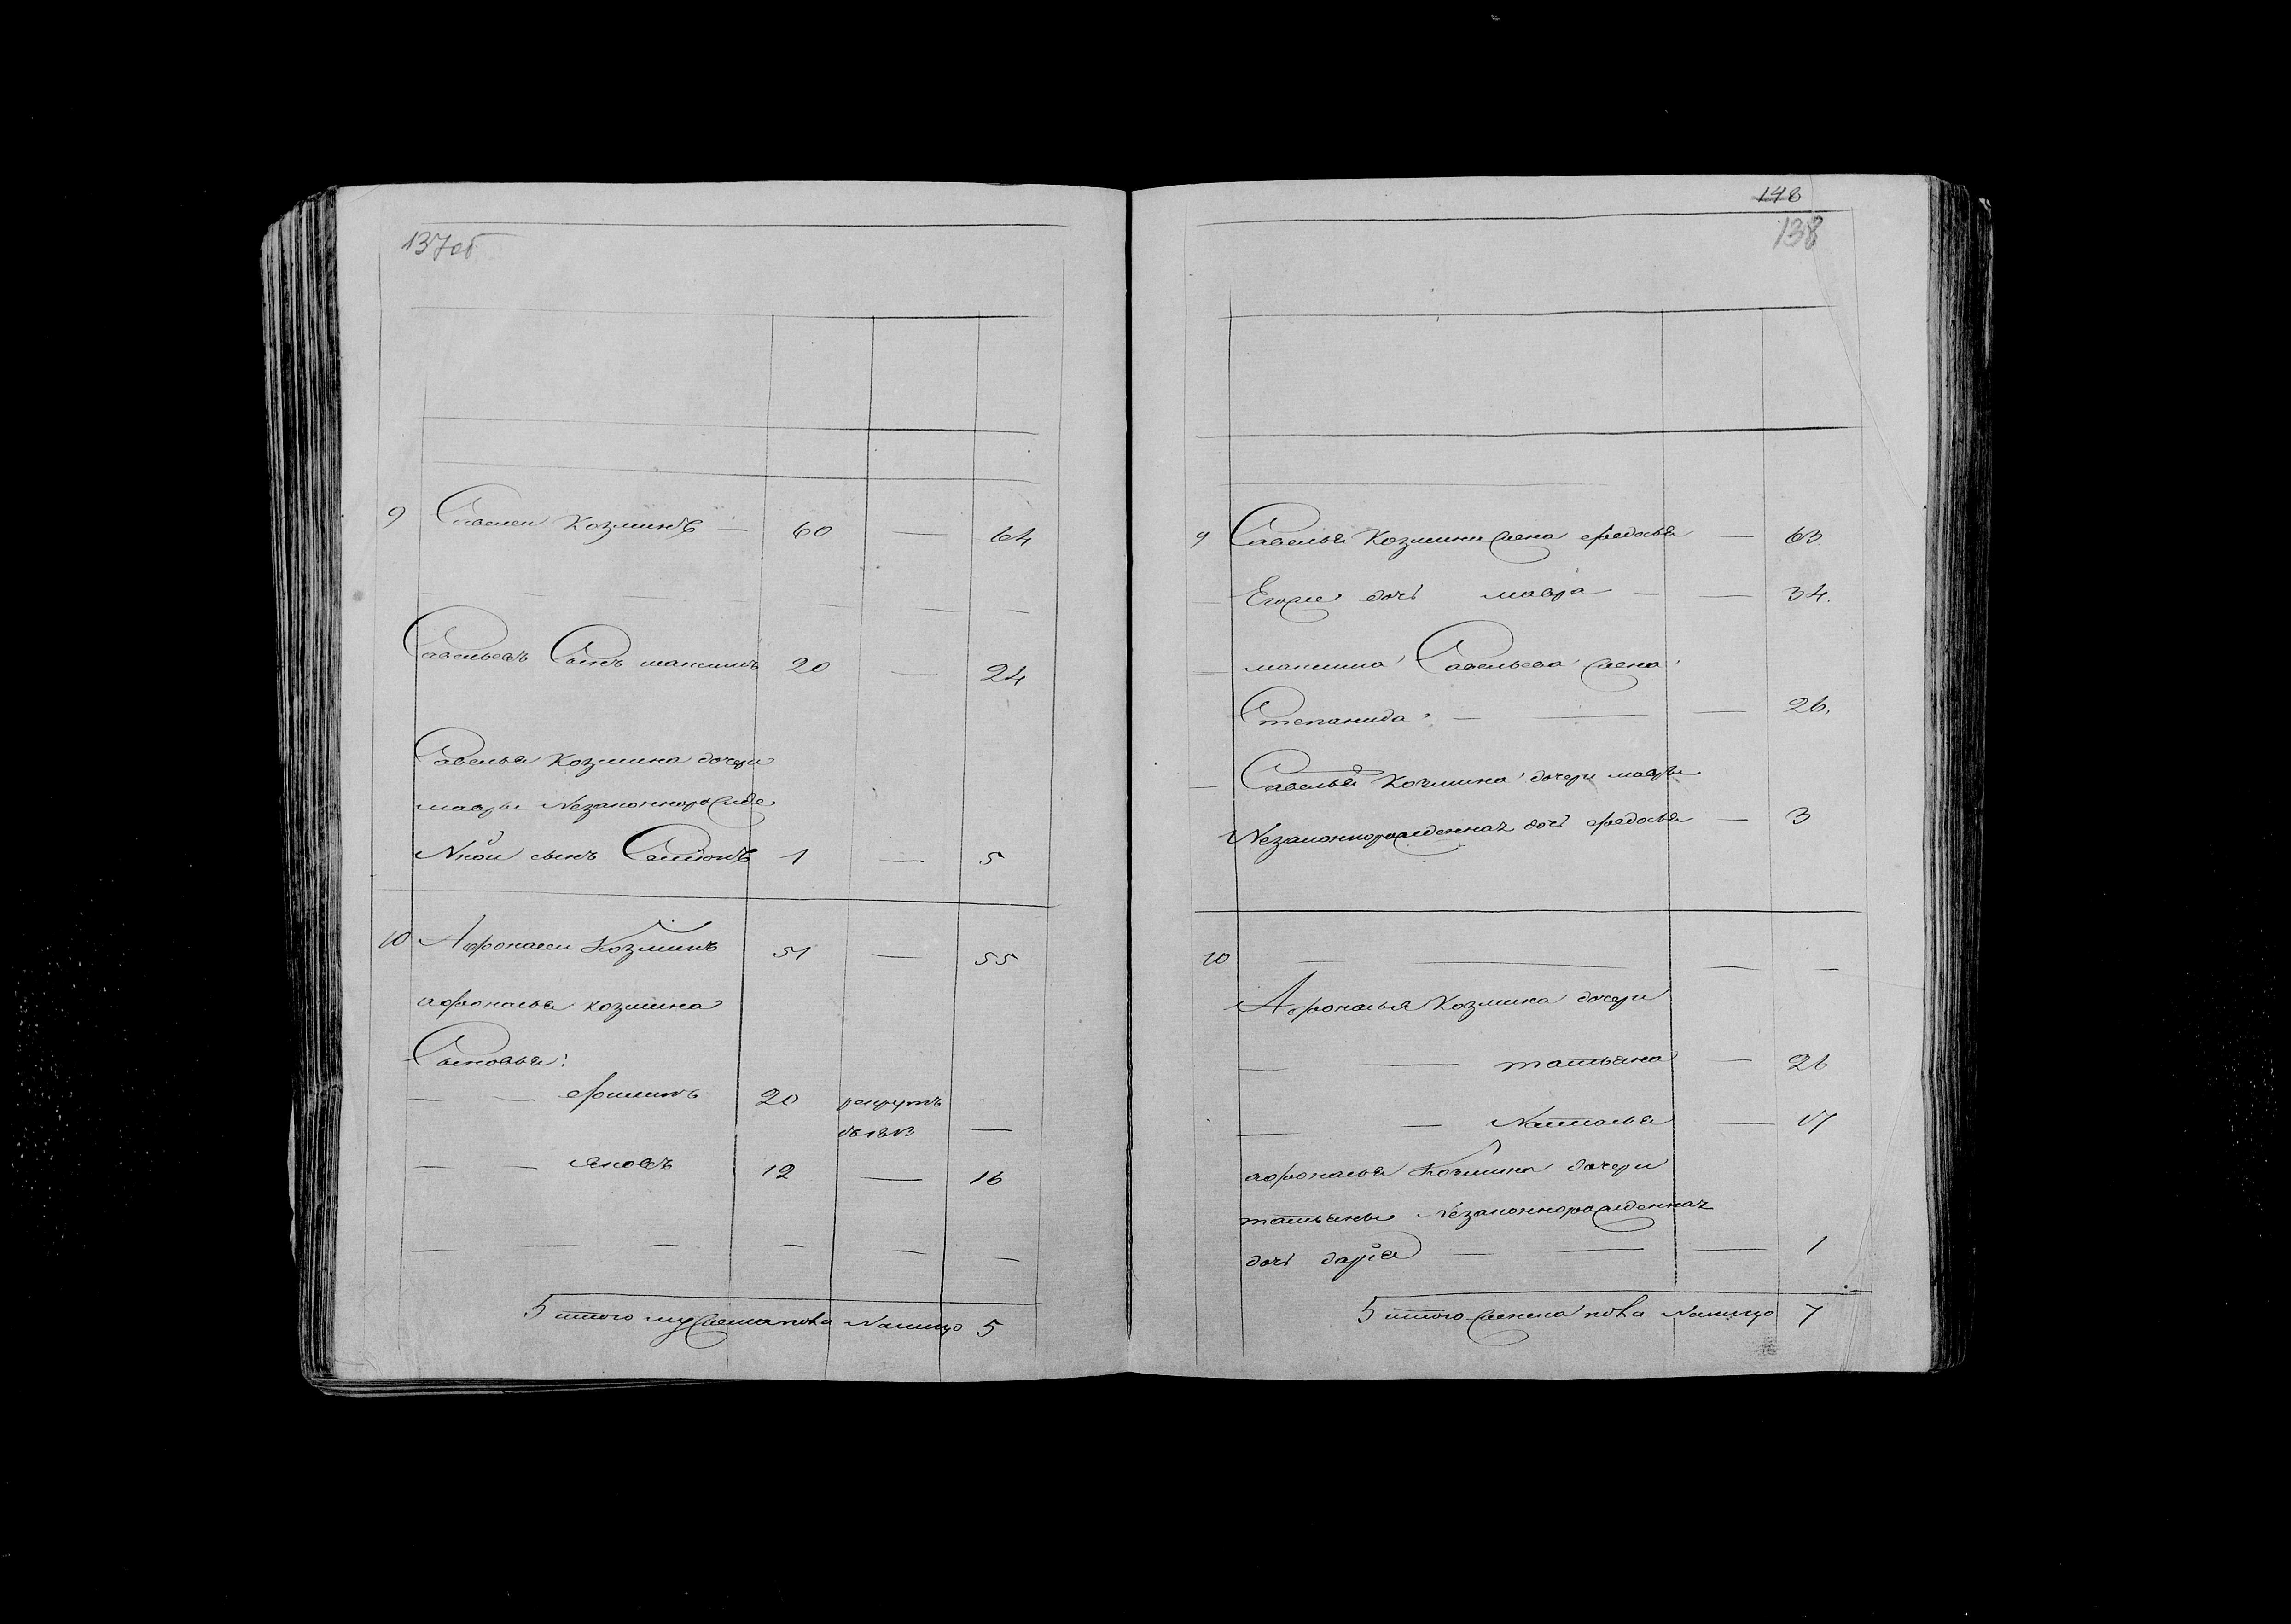 137об
9 Савелеи Козминъ — 60 — 64
— — — — —
Савельевъ Сынъ максимъ 20 — 24
Савелья Козмина дочери
мавры Незаконнорожде
Нной сынъ Семионъ 1 — 5
10 Афонасеи Козминъ 51 — 55
афонасья козмина
Сыновья:
— — филипъ 20 рекрутъ
въ 1813 —
— — яковъ 12 — 16
— — — — — —
5 итого мужеска пола Налицо 5
148
138
9 Савелья Козмина жена федосья — 63
— Егоже дочь мавра — — 34.
— максима Савельева жена
Степанида — — — 26.
— Савелья Козмина дочери мавры
Незаконнорожденная дочь федосья — 3
10 — — — —
Афонасья Козмина дочери
— — татьяна — 26
— — Наталья — 17
афонасья Козмина дочери
татьяны Незаконнорожденная
дочь дарїя — — — 1
5 итого женска пола Налицо 7